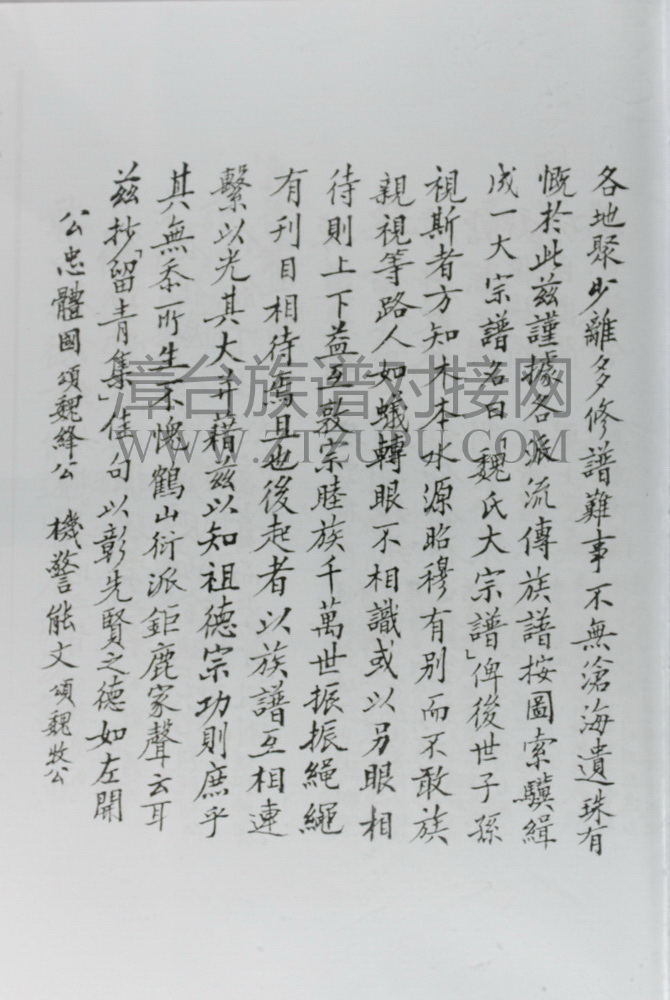 各地聚少離多修譜難事不無滄海遺珠有
慨於此茲謹據各派流傳族譜按圖索驥緝
成一大宗譜名曰「魏氏大宗譜」俾後世子孫
視斯者方知木本水源昭穆有別而不敢族
親視等路人如蟻轉眼不相識或以另眼相
待則上下益互敦宗睦族千萬世振振繩繩
有刊目相待焉且也後起者以族譜互相連
繫以光其大并藉茲以知祖德宗功則庶乎
其無忝所生不愧鶴山衍派鉅鹿家聲云耳
茲抄「留青集」佳句以彰先賢之德如左開
公忠體國頌魏絳公 機警能文頌魏牧公
漳台族谱对接网
WWW.ZTZUPU.COM